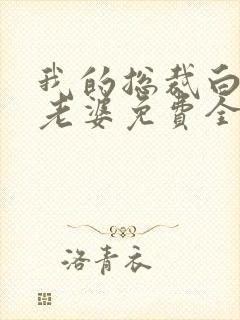 我的总裁白
老婆免费全
洛青衣